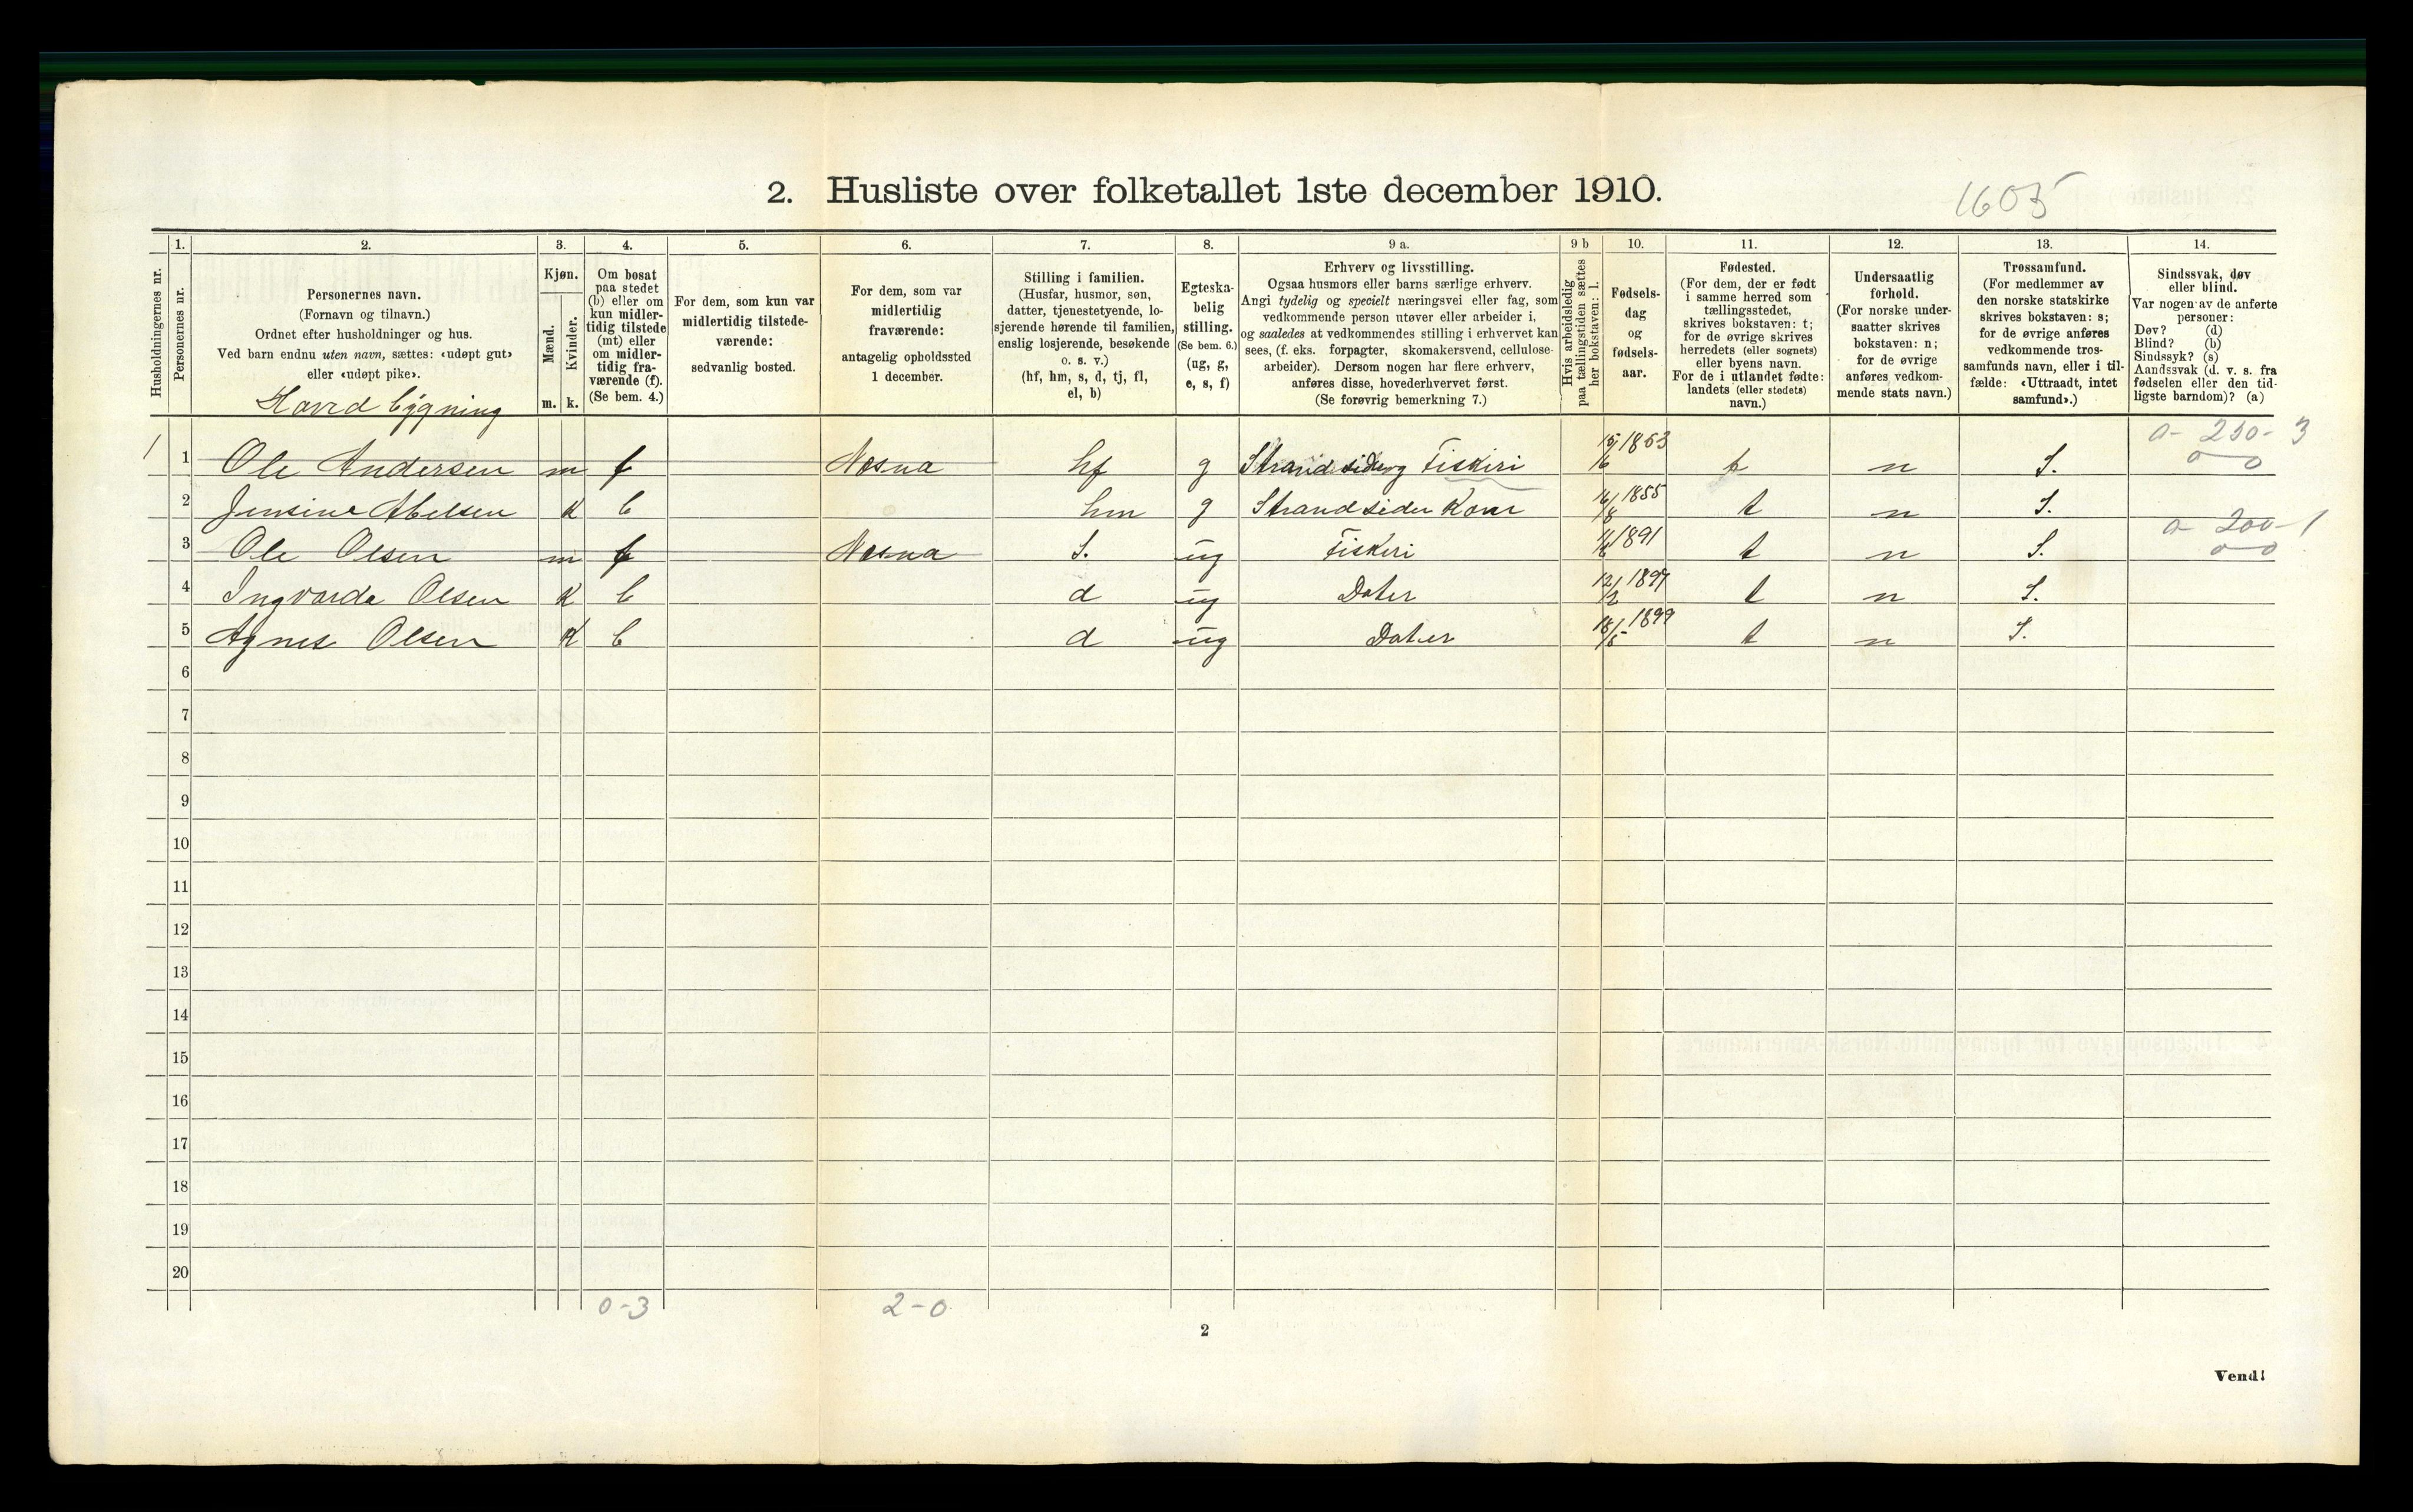 2. Husliste over folketallet 1ste december 1910.
1605
1. 2. 3. 4. 5. 6. 7. 8. 9 a. 9 b 10. 11. 12. 13. 14.
Husholdningernes nr.
Personernes nr.
Personernes navn.
(Fornavn og tilnavn.)
Ordnet efter husholdninger og hus.
Ved barn endnu uten navn, sættes: «udøpt gut»
eller «udøpt pike».
Kjøn.
Mænd.
Kvinder.
m. k.
Om bosat
paa stedet
(b) eller om
kun midler-
tidig tilstede
(mt) eller
om midler-
tidig fra-
værende (f).
(Se bem. 4.)
For dem, som kun var
midlertidig tilstede-
værende:
sedvanlig bosted.
For dem, som var
midlertidig
fraværende:
antagelig opholdssted
1 december.
Stilling i familien.
(Husfar, husmor, søn,
datter, tjenestetyende, lo-
sjerende hørende til familien,
enslig losjerende, besøkende
o. s. v.)
(hf, hm, s, d, tj, fl,
el, b)
Egteska-
belig
stilling.
(Se bem. 6.)
(ug, g,
e, s, f)
Erhverv og livsstilling.
Ogsaa husmors eller barns særlige erhverv.
Angi tydelig og specielt næringsvei eller fag, som
vedkommende person utøver eller arbeider i,
og saaledes at vedkommendes stilling i erhvervet kan
sees, (f. eks. forpagter, skomakersvend, cellulose-
arbeider). Dersom nogen har flere erhverv,
anføres disse, hovederhvervet først.
(Se forøvrig bemerkning 7.)
Hvis arbeidsledig
paa tællingstiden sættes
her bokstaven: l.
Fødsels-
dag
og
fødsels-
aar.
Fødested.
(For dem, der er født
i samme herred som
tællingsstedet,
skrives bokstaven: t;
for de øvrige skrives
herredets (eller sognets)
eller byens navn.
For de i utlandet fødte:
landets (eller stedets)
navn.)
Undersaatlig
forhold.
(For norske under-
saatter skrives
bokstaven: n;
for de øvrige
anføres vedkom-
mende stats navn.)
Trossamfund.
(For medlemmer av
den norske statskirke
skrives bokstaven: s;
for de øvrige anføres
vedkommende tros-
samfunds navn, eller i til-
fælde: «Uttraadt, intet
samfund».)
Sindssvak, døv
eller blind.
Var nogen av de anførte
personer:
Døv? (d)
Blind? (b)
Sindssyk? (s)
Aandssvak (d. v. s. fra
fødselen eller den tid-
ligste barndom)? (a)
Hovedbygning
0- 250- 3
1 1 Ole Andersen m f Nesna hf g Strandsider og Fiskeri t n S. 0 0
2 Jensine Abelsen K b hm g Strandsider Kone 1855 t n S.
0- 200- 1
3 Ole Olsen m f Nesna S. ug Fiskeri 1891 t n S. 0 0
4 Ingvarda Olsen K b d ug Dater 12/2 1897 t n S.
5 Agnes Olsen K b d ug Dater 18/5 1899 t n S.
6
7
8
9
10
11
12
13
14
15
16
17
18
19
20
0-3 2-0
2
Vend!